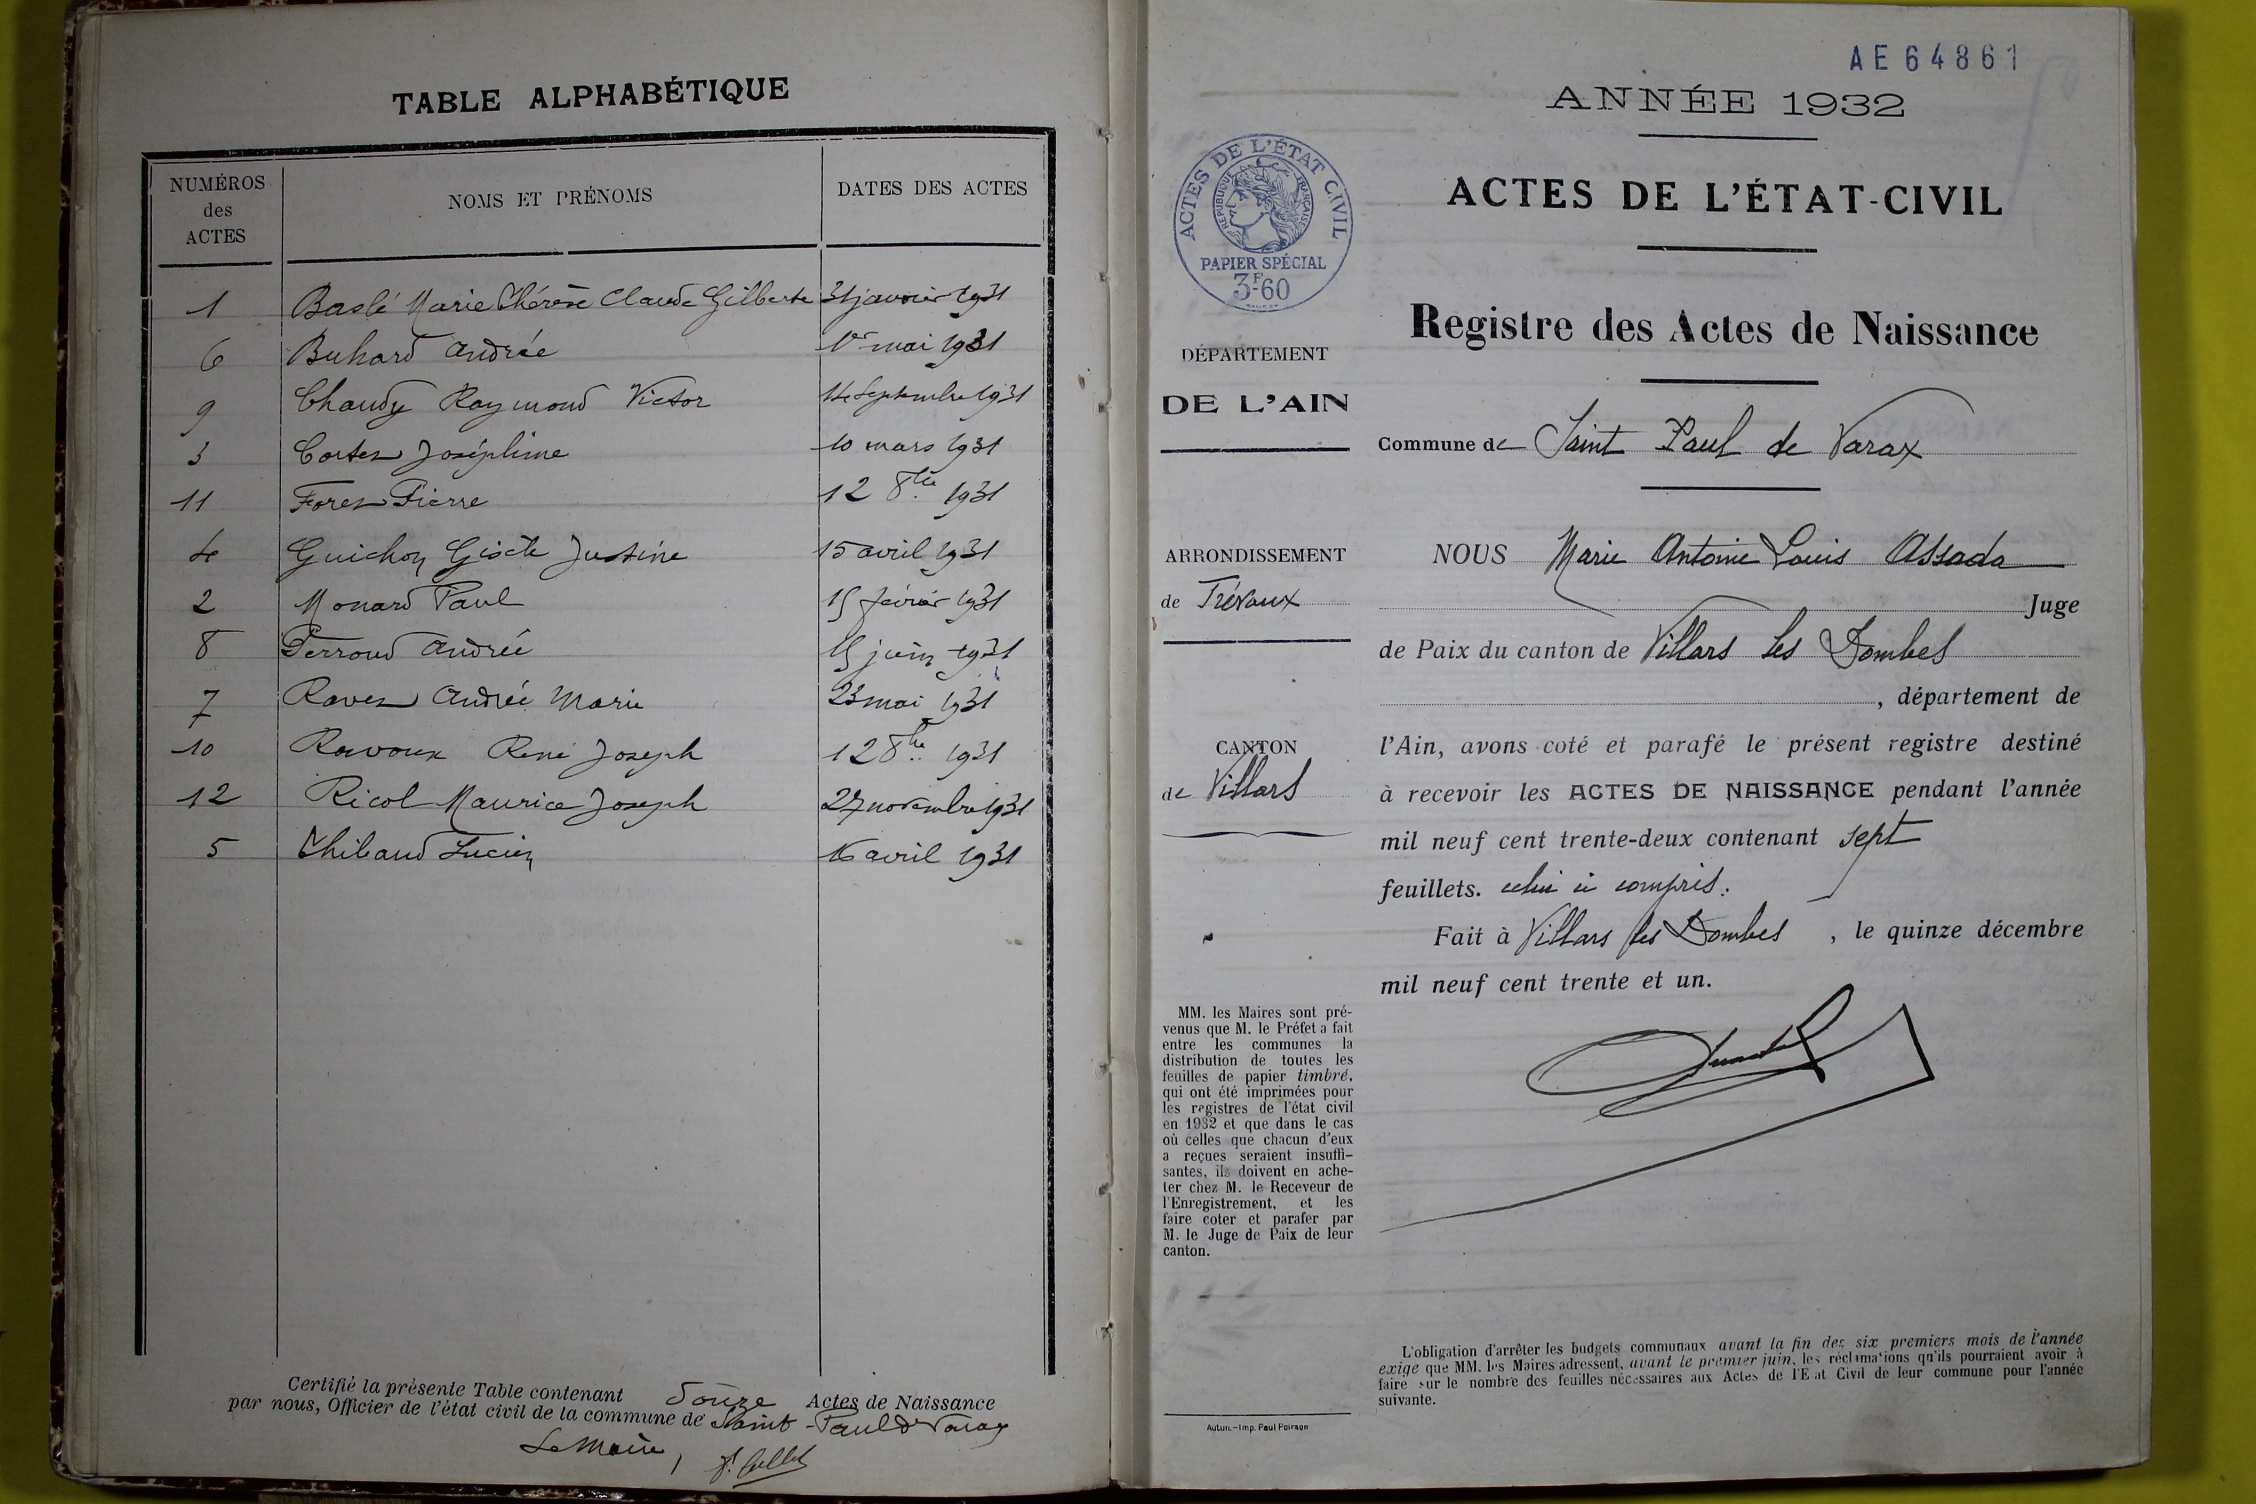 TABLE ALPHABÉTIQUE
NUMÉROS des ACTES
NOMS ET PRÉNOMS
DATES DES ACTES
1 Baslé Marie Thérèse Claude Gilberte 31 janvier 1931
6 Buhard Andrée 1er mai 1931
9 Chaudy Raymond Victor 14 Septembre 1931
3 Cortez Joséphine 10 mars 1931
11 Forez Pierre 12 8bre 1931
4 Guichon Gisèle Justine 15 avril 1931
2 Monard Paul 15 février 1931
8 Perroud Andrée 15 juin 1931
7 Ravez Andrée Marie 23 mai 1931
10 Ravoux René Joseph 12 8bre 1931
12 Ricol Maurice Joseph 27 novembre 1931
5 Thibaud Lucien 16 avril 1931
Certifié la présente Table contenant Douze Actes de Naissance
par nous, Officier de l'état civil de la commune de Saint-Paul de Varax
Le Maire,
AE64861
ANNÉE 1932
ACTES DE L'ÉTAT CIVIL
RÉPUBLIQUE FRANÇAISE
PAPIER SPÉCIAL
3F60
ACTES DE L'ÉTAT-CIVIL
Registre des Actes de Naissance
DÉPARTEMENT
DE L'AIN
Commune de Saint Paul de Varax
ARRONDISSEMENT
de Trévoux
CANTON
de Villars
NOUS Marie Antoine Louis Assada
Juge
de Paix du canton de Villars les Dombes
, département de
l'Ain, avons coté et parafé le présent registre destiné
à recevoir les ACTES DE NAISSANCE pendant l'année
mil neuf cent trente-deux contenant sept
feuillets. celui ci compris.
Fait à Villars les Dombes , le quinze décembre
mil neuf cent trente et un.
MM. les Maires sont pré-
venus que M. le Préfet a fait
entre les communes la
distribution de toutes les
feuilles de papier timbré,
qui ont été imprimées pour
les registres de l'état civil
en 1932 et que dans le cas
où celles que chacun d'eux
a reçues seraient insuffi-
santes, ils doivent en ache-
ter chez M. le Receveur de
l'Enregistrement, et les
faire coter et parafer par
M. le Juge de Paix de leur
canton.
Autun.—Imp. Paul Poirson
L'obligation d'arrêter les budgets communaux avant la fin des six premiers mois de l'année
exige que MM. les Maires adressent, avant le premier juin, les réclamations qu'ils pourraient avoir à
faire sur le nombre des feuilles nécessaires aux Actes de l'Etat Civil de leur commune pour l'année
suivante.